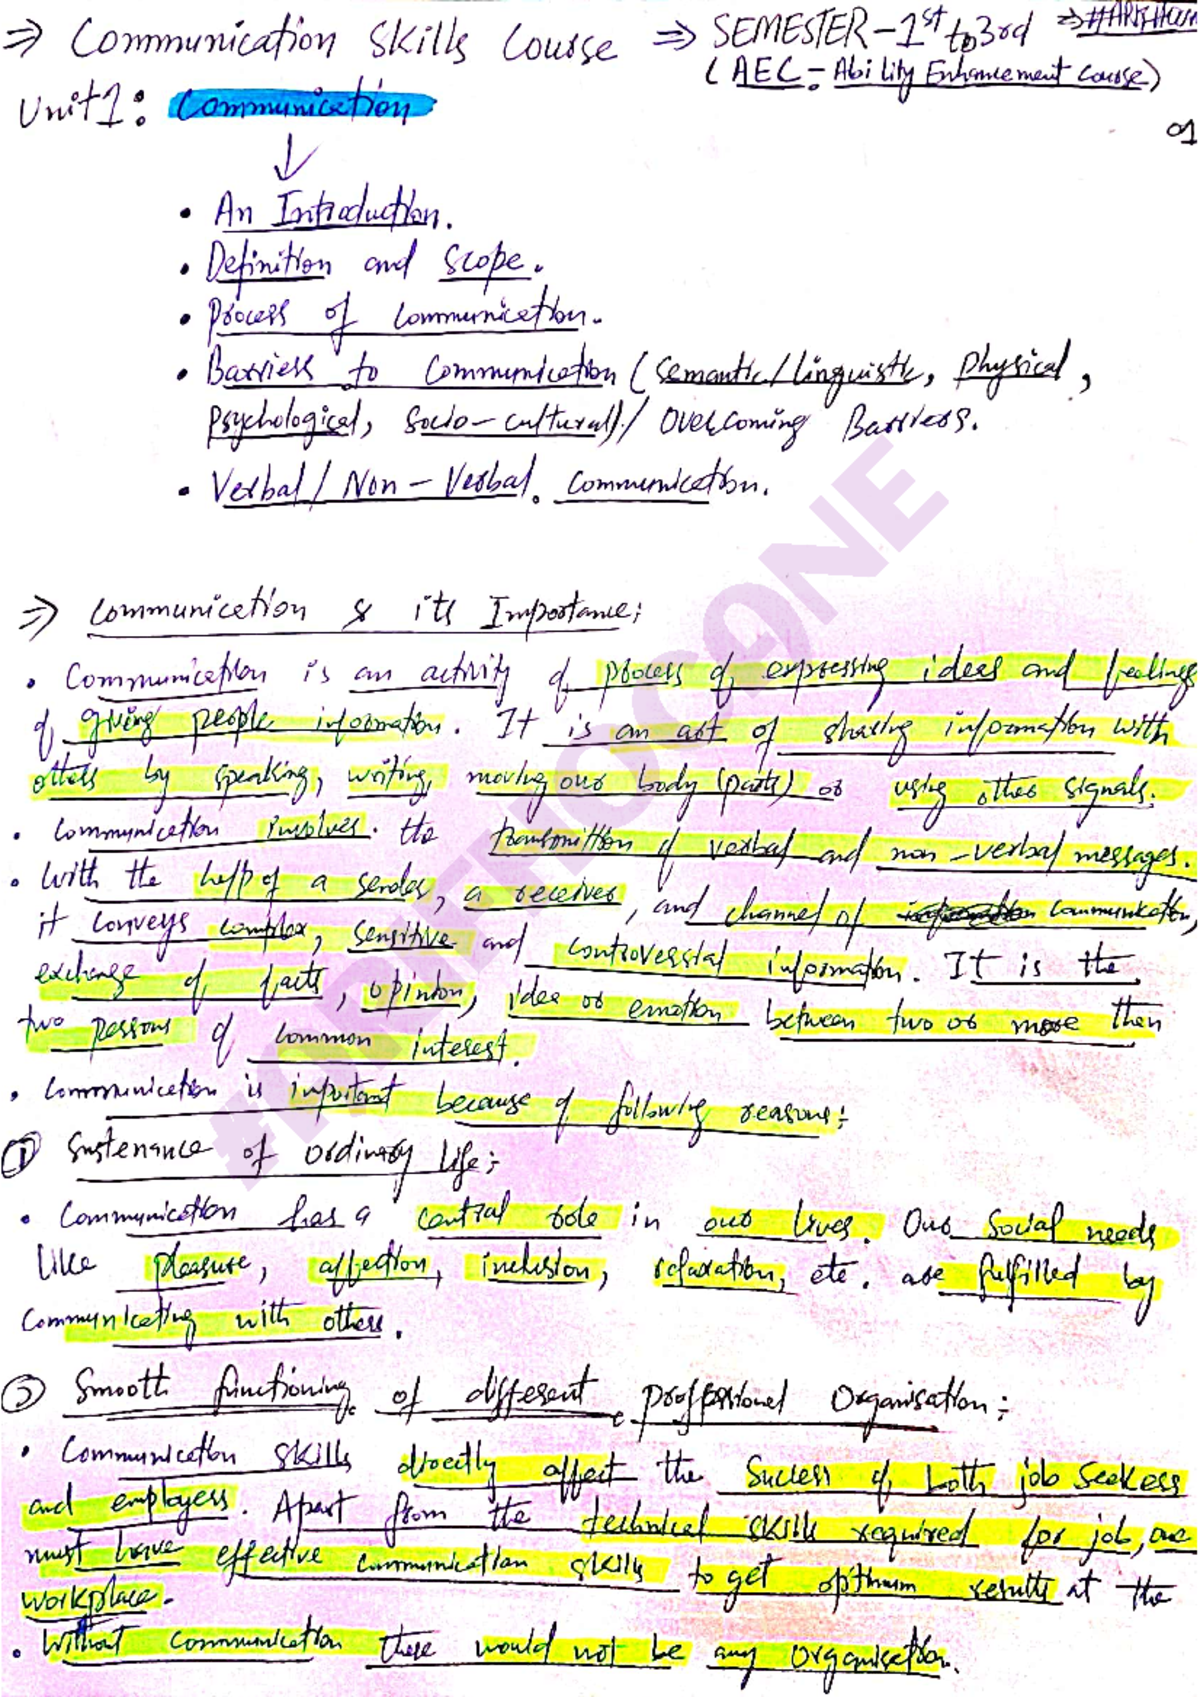 ⇒ Communication Skills Course ⇒ SEMESTER-1st to 3rd ⇒
(AEC - Ability Enhancement Course)
Unit 1: Communication
01
• An Introduction.
• Definition and Scope.
• Process of Communication.
• Barriers to Communication (Semantic/linguistic, Physical,
Psychological, Socio-cultural) / Overcoming Barriers.
• Verbal / Non-Verbal Communication.
⇒ Communication & its Importance:
• Communication is an activity of process of expressing ideas and feelings
of giving people information. It is an art of sharing information with
others by speaking, writing, moving our body (parts) or using other signals.
• Communication involves the transmittion of verbal and non-verbal messages.
• With the help of a sender, a receiver, and channel of communication,
it conveys complex, sensitive and controversial information. It is the
exchange of facts, opinion, idea or emotion between two or more then
two persons of common interest.
• Communication is important because of following reasons:
① Sustenance of ordinary life:
• Communication has a central role in our lives. Our social needs
like pleasure, affection, inclusion, relaxation, etc. are fulfilled by
communicating with others.
② Smooth functioning of different proffessional Organisation:
• Communication skills directly affect the success of both job seekers
and employers. Apart from the technical skills required for job, one
must have effective communication skills to get optimum results at the
workplace.
• Without communication there would not be any organisation.